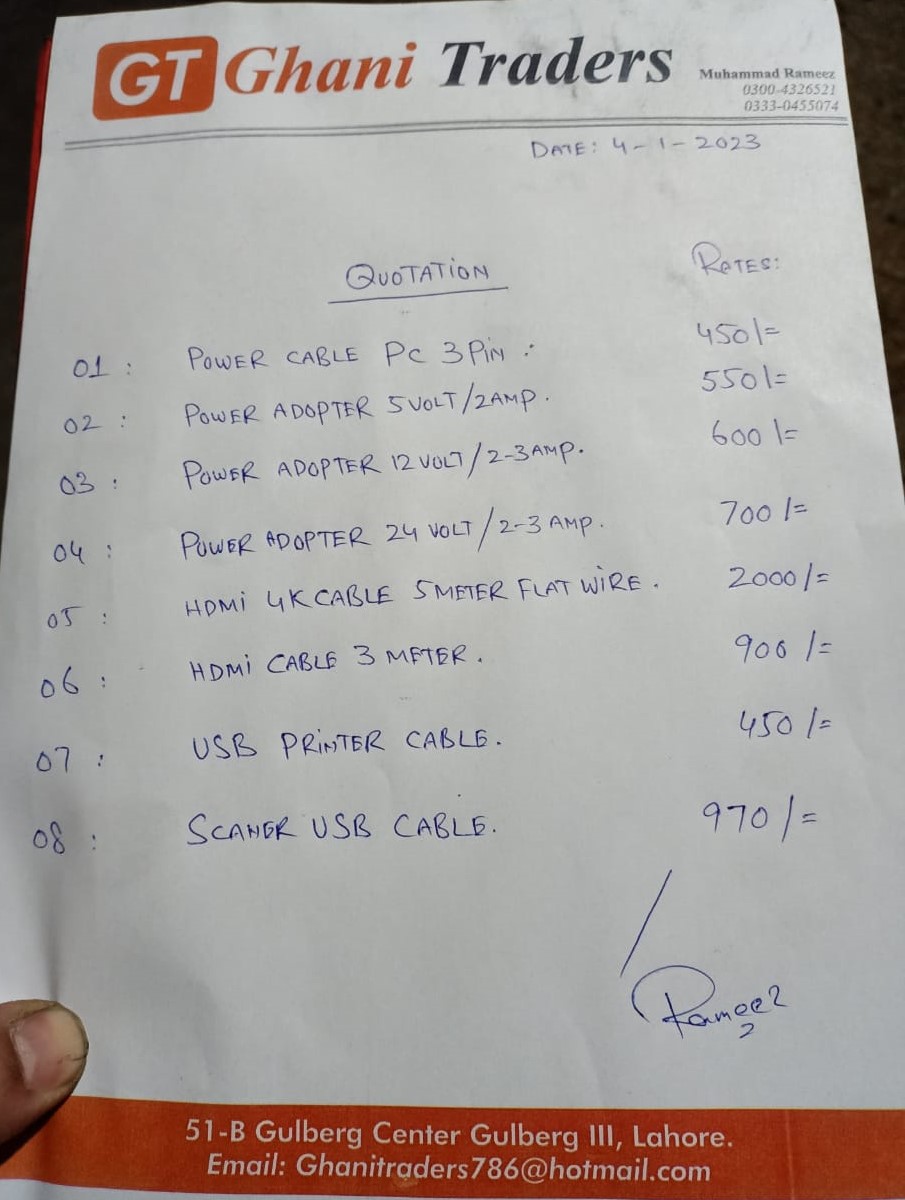 GT Ghani Traders
Muhammad Rameez
0300-4326521
0333-0455074
DATE: 4-1-2023
QUOTATION
RATES:
01 : POWER CABLE PC 3 PiN : 450/=
02 : POWER ADOPTER 5 VOLT/2AMP. 550/=
03 : POWER ADOPTER 12 VOLT/2-3 AMP. 600/=
04 : POWER ADOPTER 24 VOLT/2-3 AMP. 700/=
05 : HDMi 4K CABLE 5 METER FLAT WiRE. 2000/=
06 : HDMi CABLE 3 METER. 900/=
07 : USB PRiNTER CABLE. 450/=
08 : SCANER USB CABLE. 970/=
Rameez
51-B Gulberg Center Gulberg III, Lahore.
Email: Ghanitraders786@hotmail.com